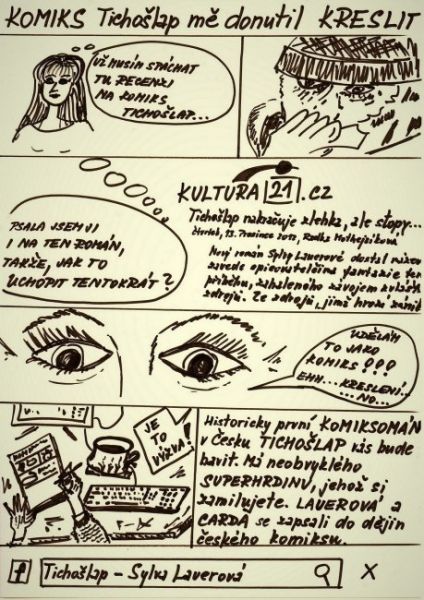 KOMIKS Tichošlap mě donutil KRESLIT
UŽ MUSÍM SPÁCHAT
TU RECENZI
NA KOMIKS
TICHOŠLAP...
PSALA JSEM JI
I NA TEN ROMÁN,
TAKŽE, JAK TO
UCHOPIT TENTOKRÁT?
KULTURA 21.cz
Tichošlap nakračuje zlehka, ale stopy...
čtvrtek, 13. prosinec 2012, Radka
Nový román Sylvy Lauerové dostal název
zavede fantazie
příběhu, zahaleného závojem
zdrojů. Ze zdrojů, jimž hrozí
UDĚLÁM
TO JAKO
KOMIKS!!!
EHH...KRESLENÍ..
...NO...
JE
TO
VÝZVA!
Historicky první KOMIKSOMÁN
v Česku TICHOŠLAP vás bude
bavit. Má neobvyklého
SUPERHRDINU, jehož si
zamilujete. LAUEROVÁ a
CARDA se zapsali do dějin
českého komiksu.
f Tichošlap - Sylva Lauerová X